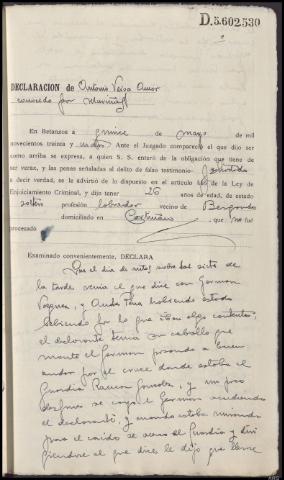 D.5.602.530
DECLARACION de Antonio Veiga Amor
conocido por Mariña
En Betanzos a quince de mayo de mil
novecientos treinta y Ante el Juzgado compareció el que dijo ser
como arriba se expresa, a quien S. S. enteró de la obligación que tiene de
ser veraz, y las penas señaladas al delito de falso testimonio
a decir verdad, se la advirtió de lo dispuesto en el artículo de la Ley de
Enjuiciamiento Criminal, y dijo tener 26 años de edad, de estado
soltero profesión labrador vecino de Bergondo
domiciliado en , que no fue
procesado
Examinado convenientemente, DECLARA
Que el dia de autos, sobre las siete de
la tarde venia el que dice con German
Vazquez, y habiendo estado
bebiendo por lo que iban algo contentos,
el declarante tenia un caballo que
monto el German
por el cruce donde estaba el
Guardia Ramon y un poco
despues se cayo el German acudiendo
el declarante, y cuando estaba mirando
para el caido se acerco el Guardia y
al que dice le dijo que